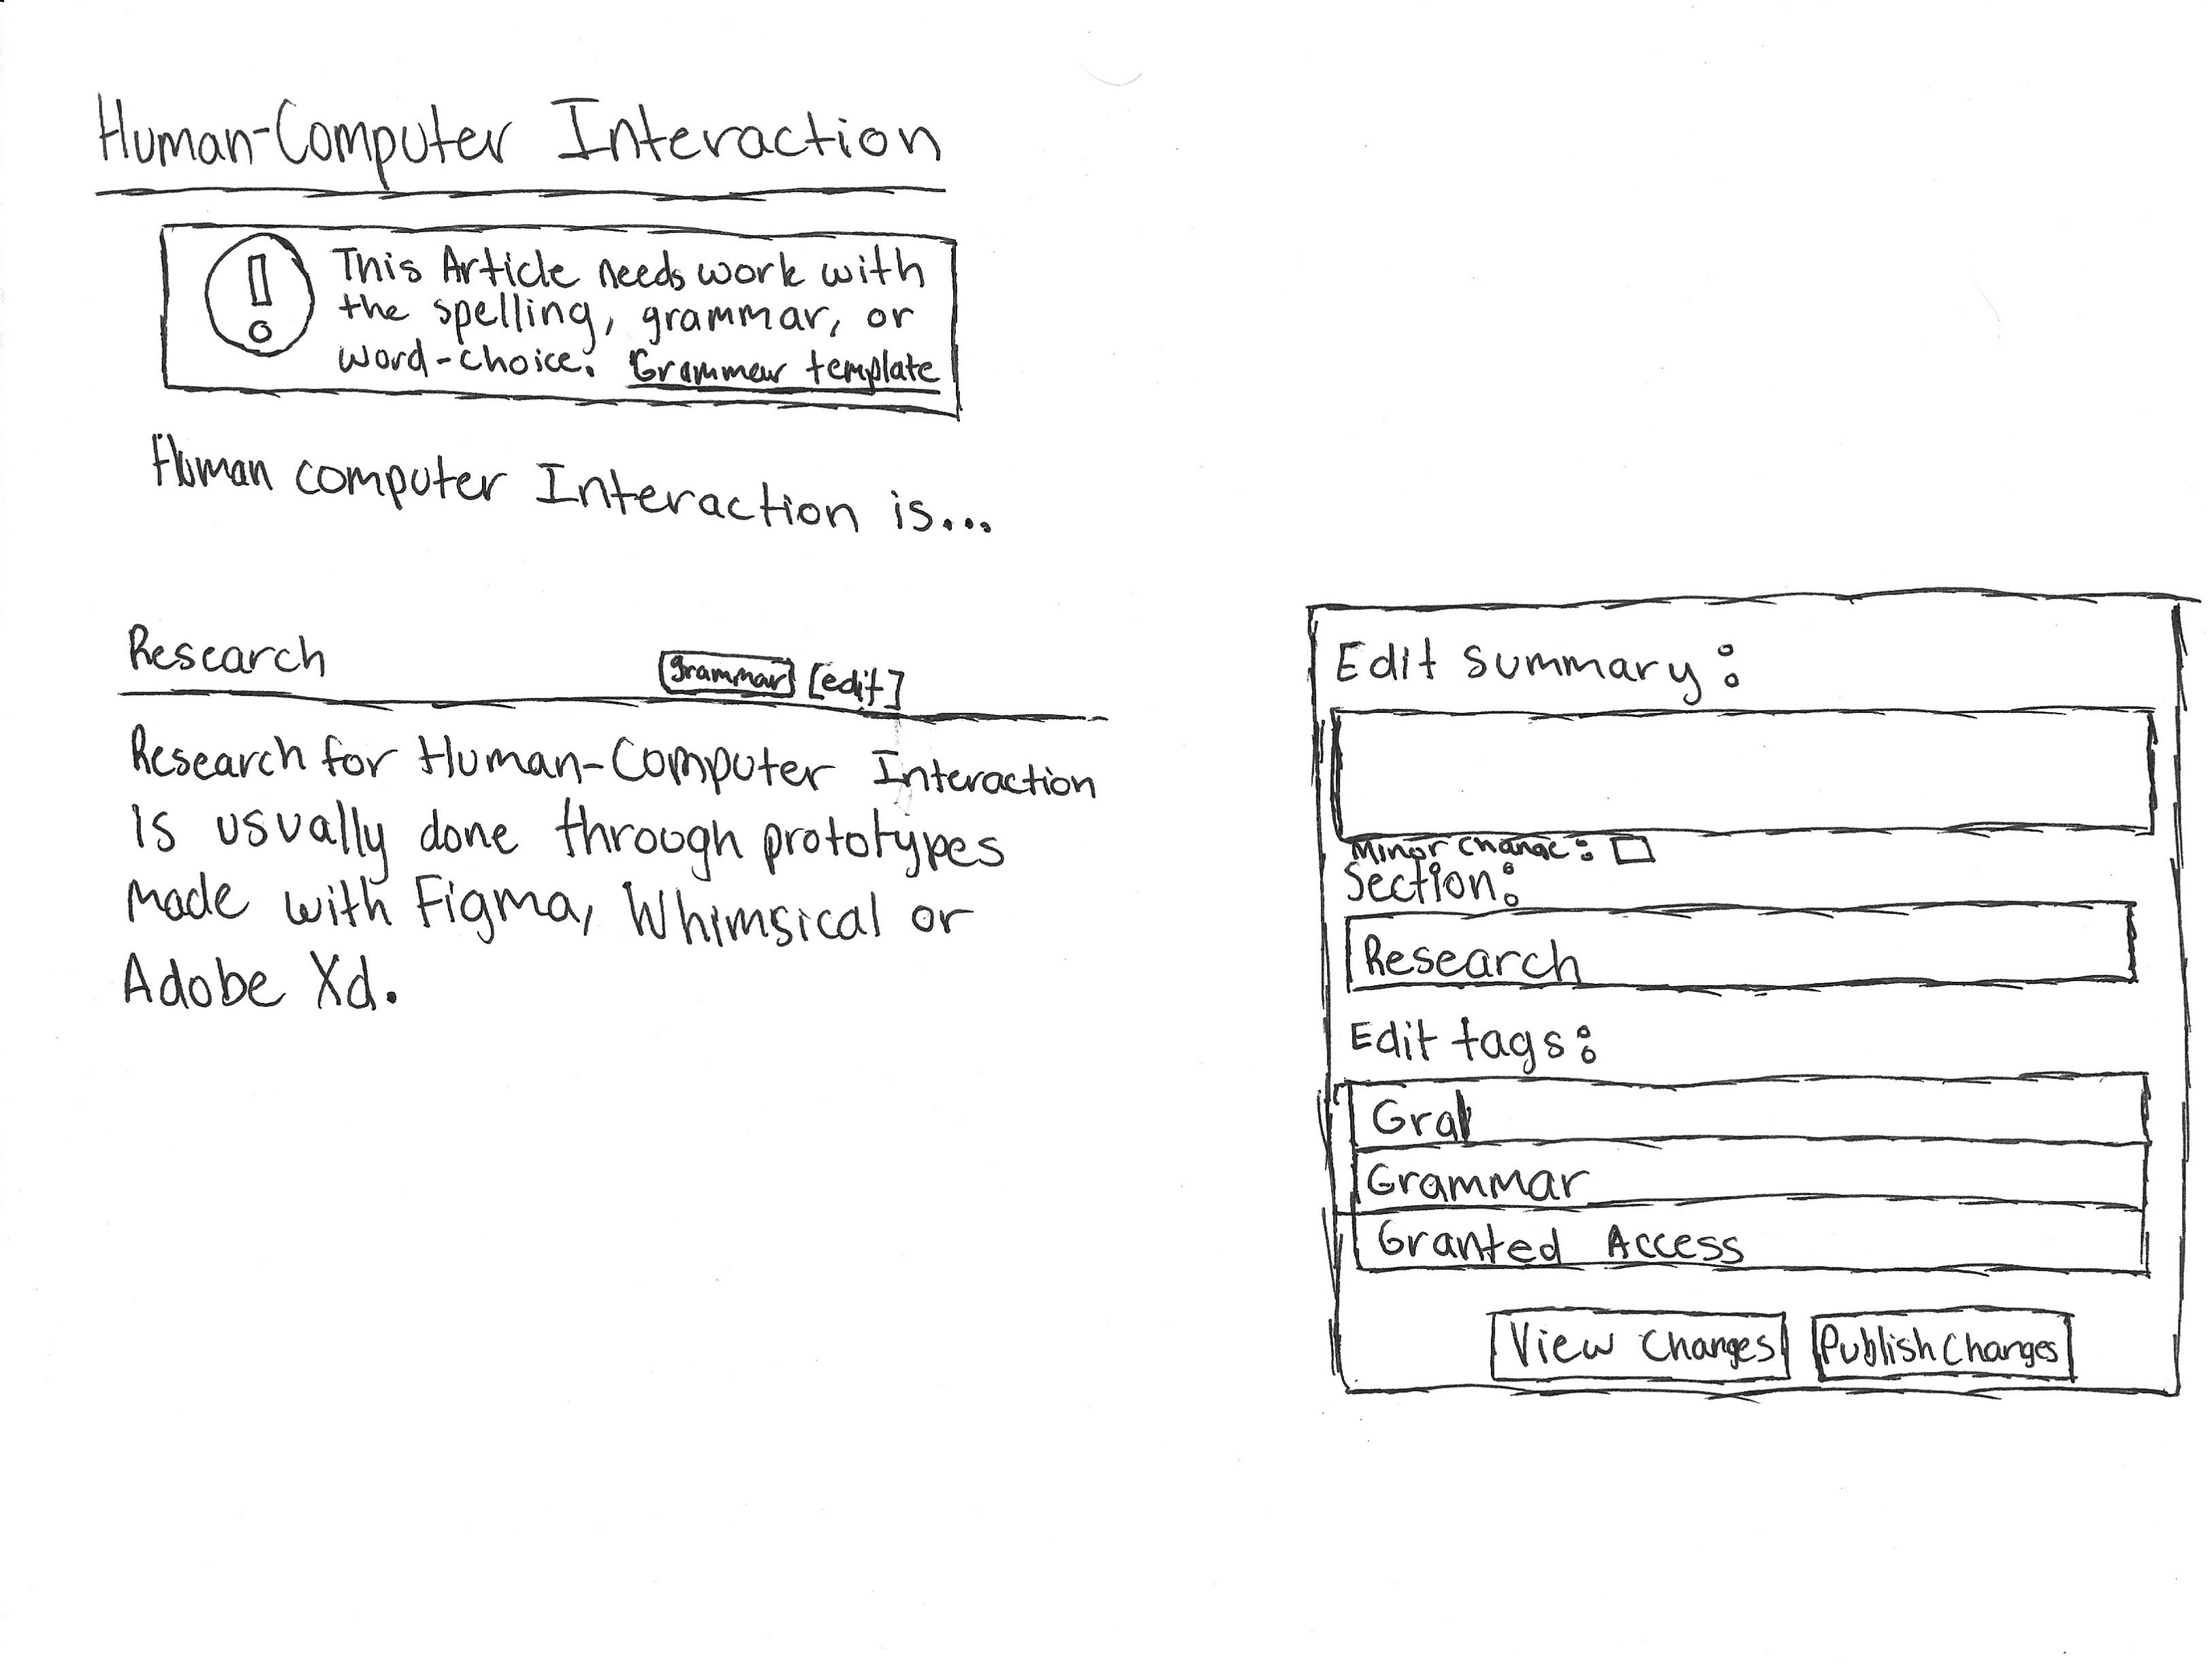 Human-Computer Interaction
This Article needs work with
the spelling, grammar, or
word-choice. Grammer template
Human computer Interaction is...
Research grammar [edit]
Research for Human-Computer Interaction
Is usually done through prototypes
made with Figma, Whimsical or
Adobe Xd.
Edit summary:
Minor change:
Section:
Research
Edit tags:
Gra
Grammar
Granted Access
View Changes Publish Changes